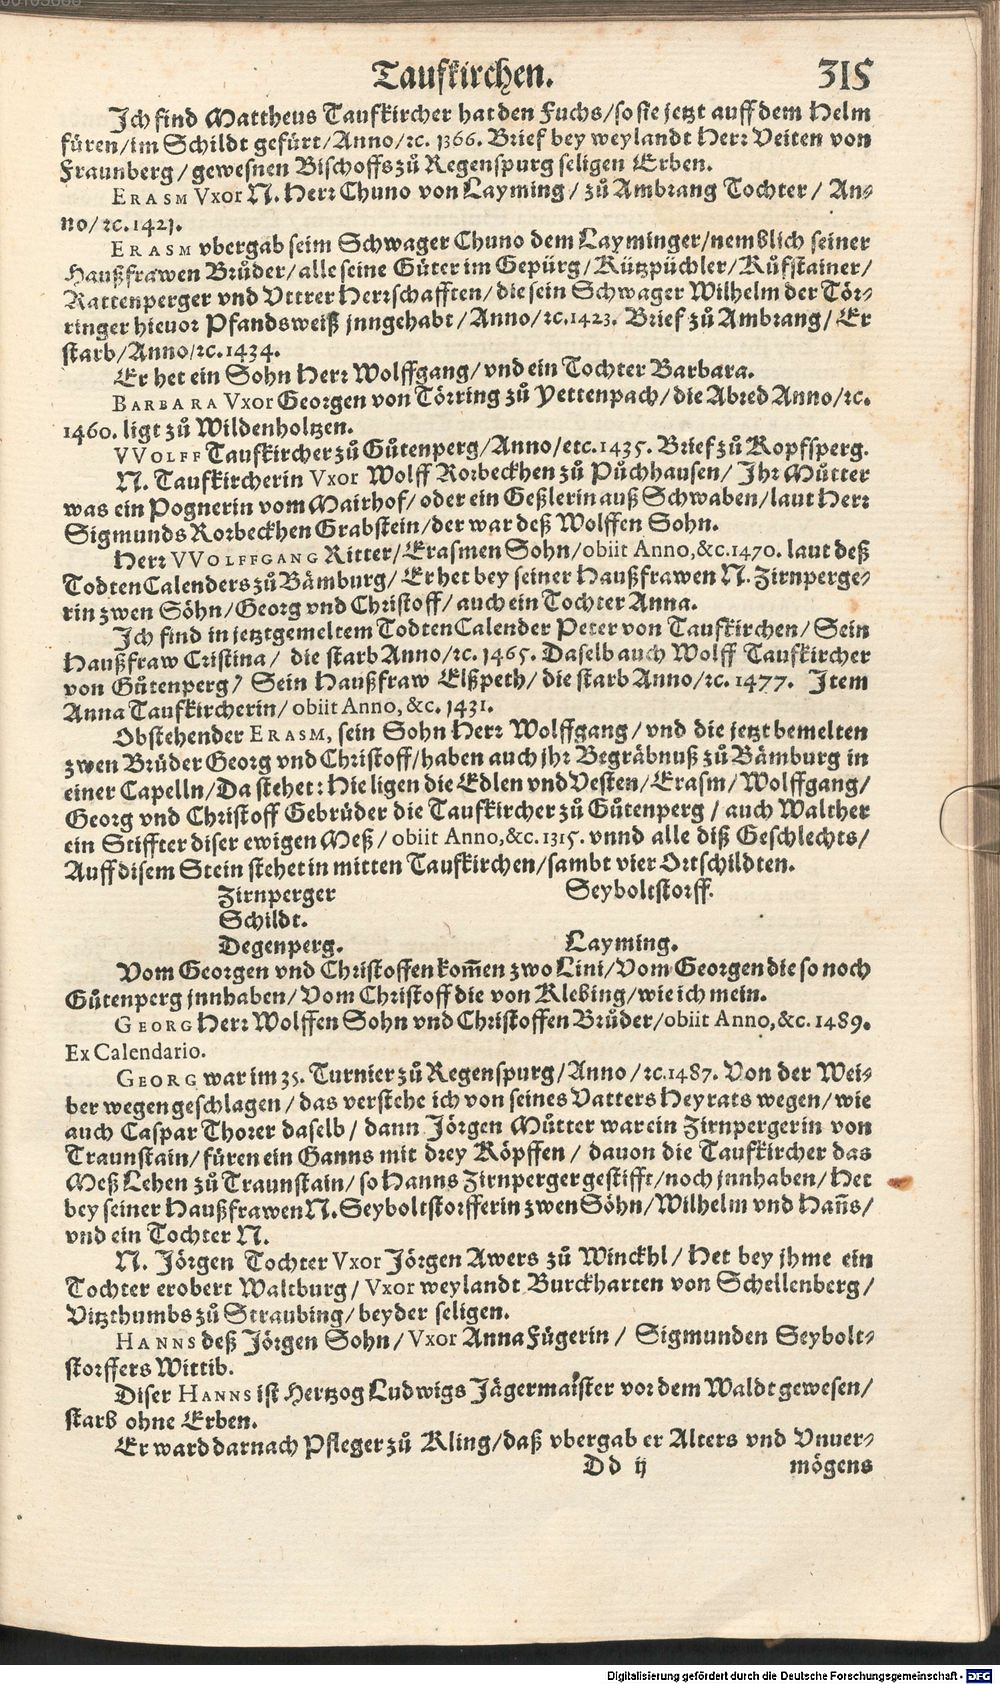 00103088
Taufkirchen. 315
Ich find Mattheus Taufkircher hat den Fuchs/so sie jetzt auff dem Helm
füren/im Schildt gefürt/Anno/ꝛc. 1366. Brief bey weylandt Herr Veiten von
Fraunberg/gewesnen Bischoffs zů Regenspurg seligen Erben.
ERASM Vxor N. Herr Chuno von Layming/zů Ambrang Tochter/An-
no/ꝛc. 1421.
ERASM vbergab seim Schwager Chuno dem Layminger/nemblich seiner
Haußfrawen Brůder/alle seine Güter im Gepürg/Kützpüchler/Kůfstainer/
Rattenperger vnd Vttrer Herrschafften/die sein Schwager Wilhelm der Tör-
ringer hieuor Pfandsweiß jnngehabt/Anno/ꝛc. 1423. Brief zů Ambrang/Er
starb/Anno/ꝛc. 1434.
Er het ein Sohn Herr Wolffgang/vnd ein Tochter Barbara.
BARBARA Vxor Georgen von Törring zů Yettenpach/die Abred Anno/ꝛc.
1460. ligt zů Wildenholtzen.
VVOLFF Taufkircher zů Gůtenperg/Anno/etc. 1435. Brief zů Kopfsperg.
N. Taufkircherin Vxor Wolff Rorbeckhen zů Půchhausen/Ihr Můtter
was ein Pognerin vom Mairhof/oder ein Geßlerin auß Schwaben/laut Herr
Sigmunds Rorbeckhen Grabstein/der war deß Wolffen Sohn.
Herr VVOLFFGANG Ritter/Erasmen Sohn/obiit Anno,&c. 1470. laut deß
TodtenCalenders zů Bämburg/Er het bey seiner Haußfrawen N. Zirnperge-
rin zwen Söhn/Georg vnd Christoff/auch ein Tochter Anna.
Ich find in jetztgemeltem TodtenCalender Peter von Taufkirchen/Sein
Haußfraw Cristina/die starb Anno/ꝛc. 1465. Daselb auch Wolff Taufkircher
von Gůtenperg/Sein Haußfraw Elßpeth/die starb Anno/ꝛc. 1477. Item
Anna Taufkircherin/obiit Anno,&c. 1431.
Obstehender ERASM, sein Sohn Herr Wolffgang/vnd die jetzt bemelten
zwen Brůder Georg vnd Christoff/haben auch jhr Begräbnuß zů Bämburg in
einer Capelln/Da stehet: Hie ligen die Edlen vnd Vesten/Erasm/Wolffgang/
Georg vnd Christoff Gebrüder die Taufkircher zů Gůtenperg/auch Walther
ein Stiffter diser ewigen Meß/obiit Anno,&c. 1315. vnnd alle diß Geschlechts/
Auff disem Stein stehet in mitten Taufkirchen/sambt vier Ortschildten.
Zirnperger Seyboltstorff.
Schildt.
Degenperg. Layming.
Vom Georgen vnd Christoffen kom̃en zwo Lini/Vom Georgen die so noch
Gůtenperg jnnhaben/Vom Christoff die von Klebing/wie ich mein.
GEORG Herr Wolffen Sohn vnd Christoffen Brůder/obiit Anno,&c. 1489.
Ex Calendario.
GEORG war im 35. Turnier zů Regenspurg/Anno/ꝛc. 1487. Von der Wei-
ber wegen geschlagen/das verstehe ich von seines Vatters Heyrats wegen/wie
auch Caspar Thorer daselb/dann Jörgen Můtter war ein Zirnpergerin von
Traunstain/füren ein Ganns mit drey Köpffen/dauon die Taufkircher das
Meß Lehen zů Traunstain/so Hanns Zirnperger gestifft/noch jnnhaben/Het
bey seiner Haußfrawen N. Seyboltstorfferin zwen Söhn/Wilhelm vnd Han̄s/
vnd ein Tochter N.
N. Jörgen Tochter Vxor Jörgen Awers zů Winckhl/Het bey jhme ein
Tochter erobert Waltburg/Vxor weylandt Burckharten von Schellenberg/
Vitzthumbs zů Straubing/beyder seligen.
HANNS deß Jörgen Sohn/Vxor Anna Fügerin/Sigmunden Seybolt-
storffers Wittib.
Diser HANNS ist Hertzog Ludwigs Jägermaister vor dem Waldt gewesen/
starb ohne Erben.
Er ward darnach Pfleger zů Kling/daß vbergab er Alters vnd Vnuer-
Dd ij mögens
Digitalisierung gefördert durch die Deutsche Forschungsgemeinschaft - DFG